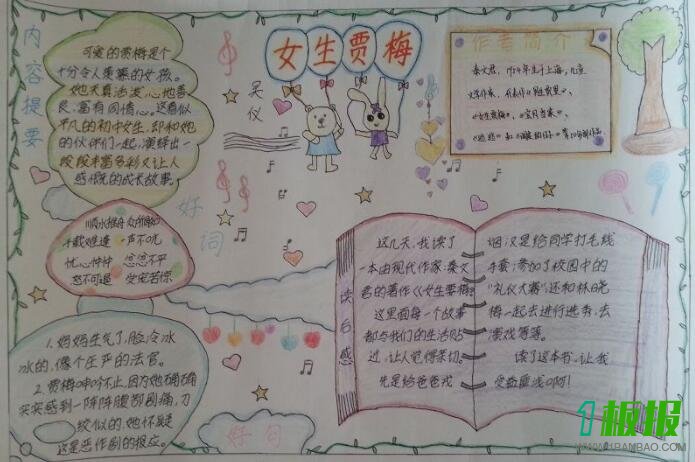 内容提要
可爱的贾梅是个
十分令人羡慕的女孩。
她天真活泼、心地善
良、富有同情心。这看似
平凡的初中女生,却和她
的伙伴们一起,演绎出一
段段丰富多彩又让人
感慨的成长故事。
女生贾梅
吴仪
作者简介
秦文君,1954年生于上海,儿童
文学作家,代表作《男生贾里》、
《女生贾梅》、《宝贝当家》、
好词
顺水推舟 众所周知
千载难逢 一声不吭
忧心忡忡 忿忿不平
怒不可遏 安宅若惊
好句
1.妈妈生气了,脸冷冰
冰的,像个庄严的法官。
2.贾梅呻吟不止,因为她确确
实实感到一阵阵腹部剧痛,刀
绞似的,她怀疑
这是恶作剧的报应。
读后感
这几天,我读了
一本由现代作家:秦文
君的著作《女生贾梅》
这里面每一个故事
都与我们的生活贴
近,让人觉得亲切。
先是给爸爸戒
烟,汉是给同学打毛线
手套;参加了校园中的
“礼仪大赛”还和林晓
梅一起去进行选秀,去
演戏等等。
读了这本书,让我
受益匪浅啊!
1板报
WWW.1BANBAO.COM